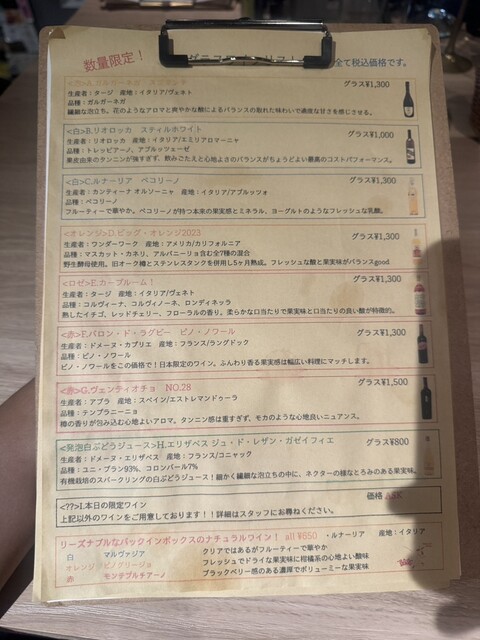 数量限定！
全て税込価格です。
グラス¥1,300
生産者：タージ 産地：イタリア/ヴェネト
品種：ガルガーネガ
繊細な泡立ち。花のようなアロマと爽やかな酸によるバランスの取れた味わいで適度な甘さを感じさせる。
<白>B.リオロッカ スティルホワイト
グラス¥1,000
生産者：リオロッカ 産地：イタリア/エミリアロマーニャ
品種：トレッビアーノ、アブルッツェーゼ
果皮由来のタンニンが強すぎず、飲みごたえと心地よさのバランスがちょうどよい最高のコストパフォーマンス。
<白>C.ルナーリア ペコリーノ
グラス¥1,300
生産者：カンティーナ オルソーニャ 産地：イタリア/アブルッツォ
品種：ペコリーノ
フルーティーで華やか。ペコリーノが持つ本来の果実感とミネラル、ヨーグルトのようなフレッシュな乳酸。
<オレンジ>D.ビッグ・オレンジ2023
グラス¥1,300
生産者：ワンダーワーク 産地：アメリカ/カリフォルニア
品種：マスカット・カネリ、アルバニーリョ含む全7種の混合
野生酵母使用。旧オーク樽とステンレスタンクを併用し5ヶ月熟成。フレッシュな酸と果実味がバランスgood
<ロゼ>E.カーブルーム！
グラス¥1,300
生産者：タージ 産地：イタリア/ヴェネト
品種：コルヴィーナ、コルヴィノーネ、ロンディネッラ
熟したイチゴ、レッドチェリー、フローラルの香り。柔らかな口当たりで果実味と口当たりの良い酸が特徴的。
<赤>F.バロン・ド・ラグビー ピノ・ノワール
グラス¥1,300
生産者：ドメーヌ・カブリエ 産地：フランス/ラングドック
品種：ピノ・ノワール
ピノ・ノワールをこの価格で！日本限定のワイン。ふんわり香る果実感は幅広い料理にマッチします。
<赤>G.ヴェンティオチョ NO.28
グラス¥1,500
生産者：アブラ 産地：スペイン/エストレマンドゥーラ
品種：テンプラニーニョ
樽の香りが包み込む心地よいアロマ。タンニン感は重すぎず、モカのような心地良いニュアンス。
<発泡白ぶどうジュース>H.エリザベス ジュ・ド・レザン・ガゼイフィエ
グラス¥800
生産者：ドメーヌ・エリザベス 産地：フランス/コニャック
品種：ユニ・ブラン93%、コロンバール7%
有機栽培のスパークリングの白ぶどうジュース！細かく繊細な泡立ちの中に、ネクターの様なとろみのある果実味。
<??>I.本日の限定ワイン
価格 ASK
上記以外のワインをご用意しております！！詳細はスタッフにお尋ねください。
リーズナブルなバックインボックスのナチュラルワイン！ all ¥650 ・ルナーリア 産地：イタリア
白 マルヴァジア クリアではあるがフルーティーで華やか
オレンジ ピノグリージョ フレッシュでドライな果実味に柑橘系の心地よい酸味
赤 モンテプルチアーノ ブラックベリー感のある濃厚でボリューミーな果実味